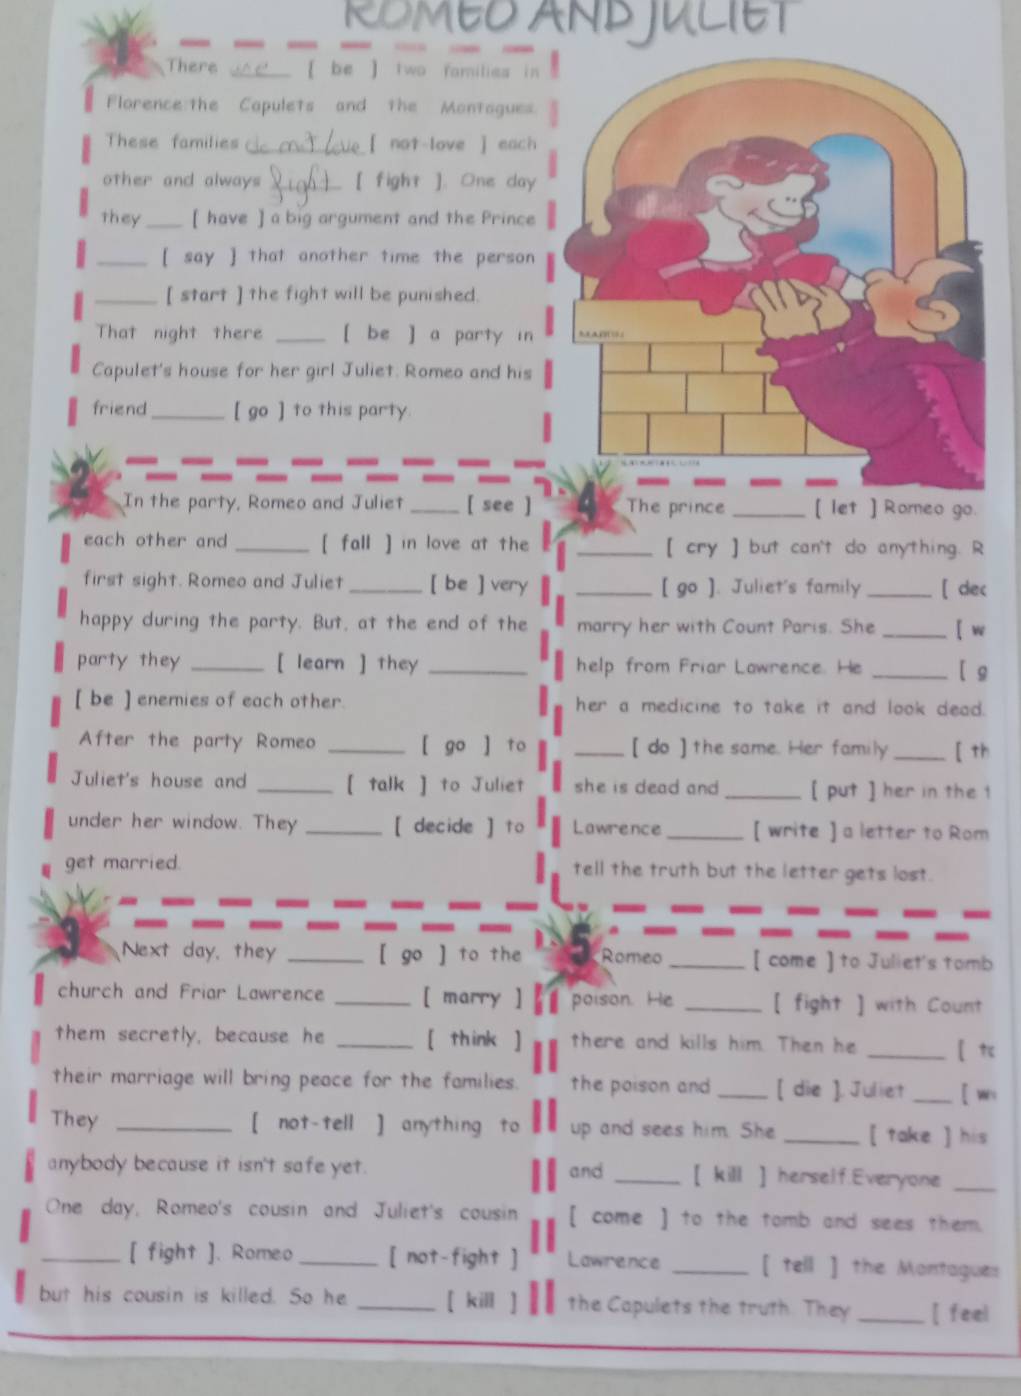 ROMEO AND JULIET
1
There are [ be ] two families in
Florence:the Capulets and the Montagues.
These families do not love [ not-love ] each
other and always fight [ fight ]. One day
they ____ [ have ] a big argument and the Prince
____ [ say ] that another time the person
____ [ start ] the fight will be punished.
That night there ____ [ be ] a party in
Capulet's house for her girl Juliet. Romeo and his
friend ____ [ go ] to this party.
2
In the party, Romeo and Juliet ____ [ see ]
each other and ____ [ fall ] in love at the
first sight. Romeo and Juliet ____ [ be ] very
happy during the party. But, at the end of the
party they ____ [ learn ] they ____
[ be ] enemies of each other.
After the party Romeo ____ [ go ] to
Juliet's house and ____ [ talk ] to Juliet
under her window. They ____ [ decide ] to
get married.
3
Next day, they ____ [ go ] to the
church and Friar Lawrence ____ [ marry ]
them secretly, because he ____ [ think ]
their marriage will bring peace for the families.
They ____ [ not-tell ] anything to
anybody because it isn't safe yet.
One day, Romeo's cousin and Juliet's cousin
____ [ fight ]. Romeo ____ [ not-fight ]
but his cousin is killed. So he ____ [ kill ]
4
The prince ____ [ let ] Romeo go.
____ [ cry ] but can't do anything. R
____ [ go ]. Juliet's family ____ [ dec
marry her with Count Paris. She ____ [ w
help from Friar Lawrence. He ____ [ g
her a medicine to take it and look dead.
____ [ do ] the same. Her family ____ [ th
she is dead and ____ [ put ] her in the t
Lawrence ____ [ write ] a letter to Rom
tell the truth but the letter gets lost.
5
Romeo ____ [ come ] to Juliet's tomb
poison. He ____ [ fight ] with Count
there and kills him. Then he ____ [ ta
the poison and ____ [ die ]. Juliet ____ [ w
up and sees him. She ____ [ take ] his
and ____ [ kill ] herself.Everyone ____
[ come ] to the tomb and sees them.
Lawrence ____ [ tell ] the Montagues
the Capulets the truth. They ____ [ feel